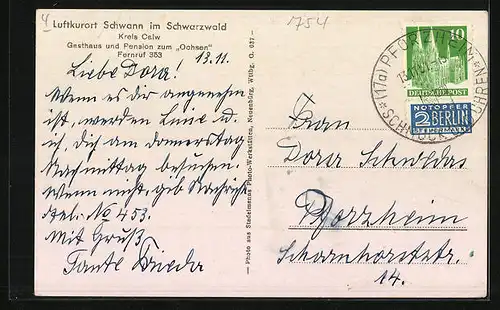 4
1754
Luftkurort Schwann im Schwarzwald
Kreis Calw
Gasthaus und Pension zum „Ochsen"
Fernruf 353
13.11.
Liebe Dora!
Wenn es dir angenehm
ist, werden Line u.
ich, dich am donnerstag
Nachmittag besuchen.
Wenn nicht, gib Nachricht
Tel. No 453.
Mit Gruß
Tante Frieda
— Photo aus Stadelmanns Photo-Werkstätten, Neuenbürg, Wttbg. G. 637 —
10
DEUTSCHE POST
NOTOPFER
2 BERLIN
STEUERMARKE
(17a) PFORZHEIM
13.11.
SCHMUCK UHREN
Frau
Dora
Pforzheim
Scharnhorststr.
14.